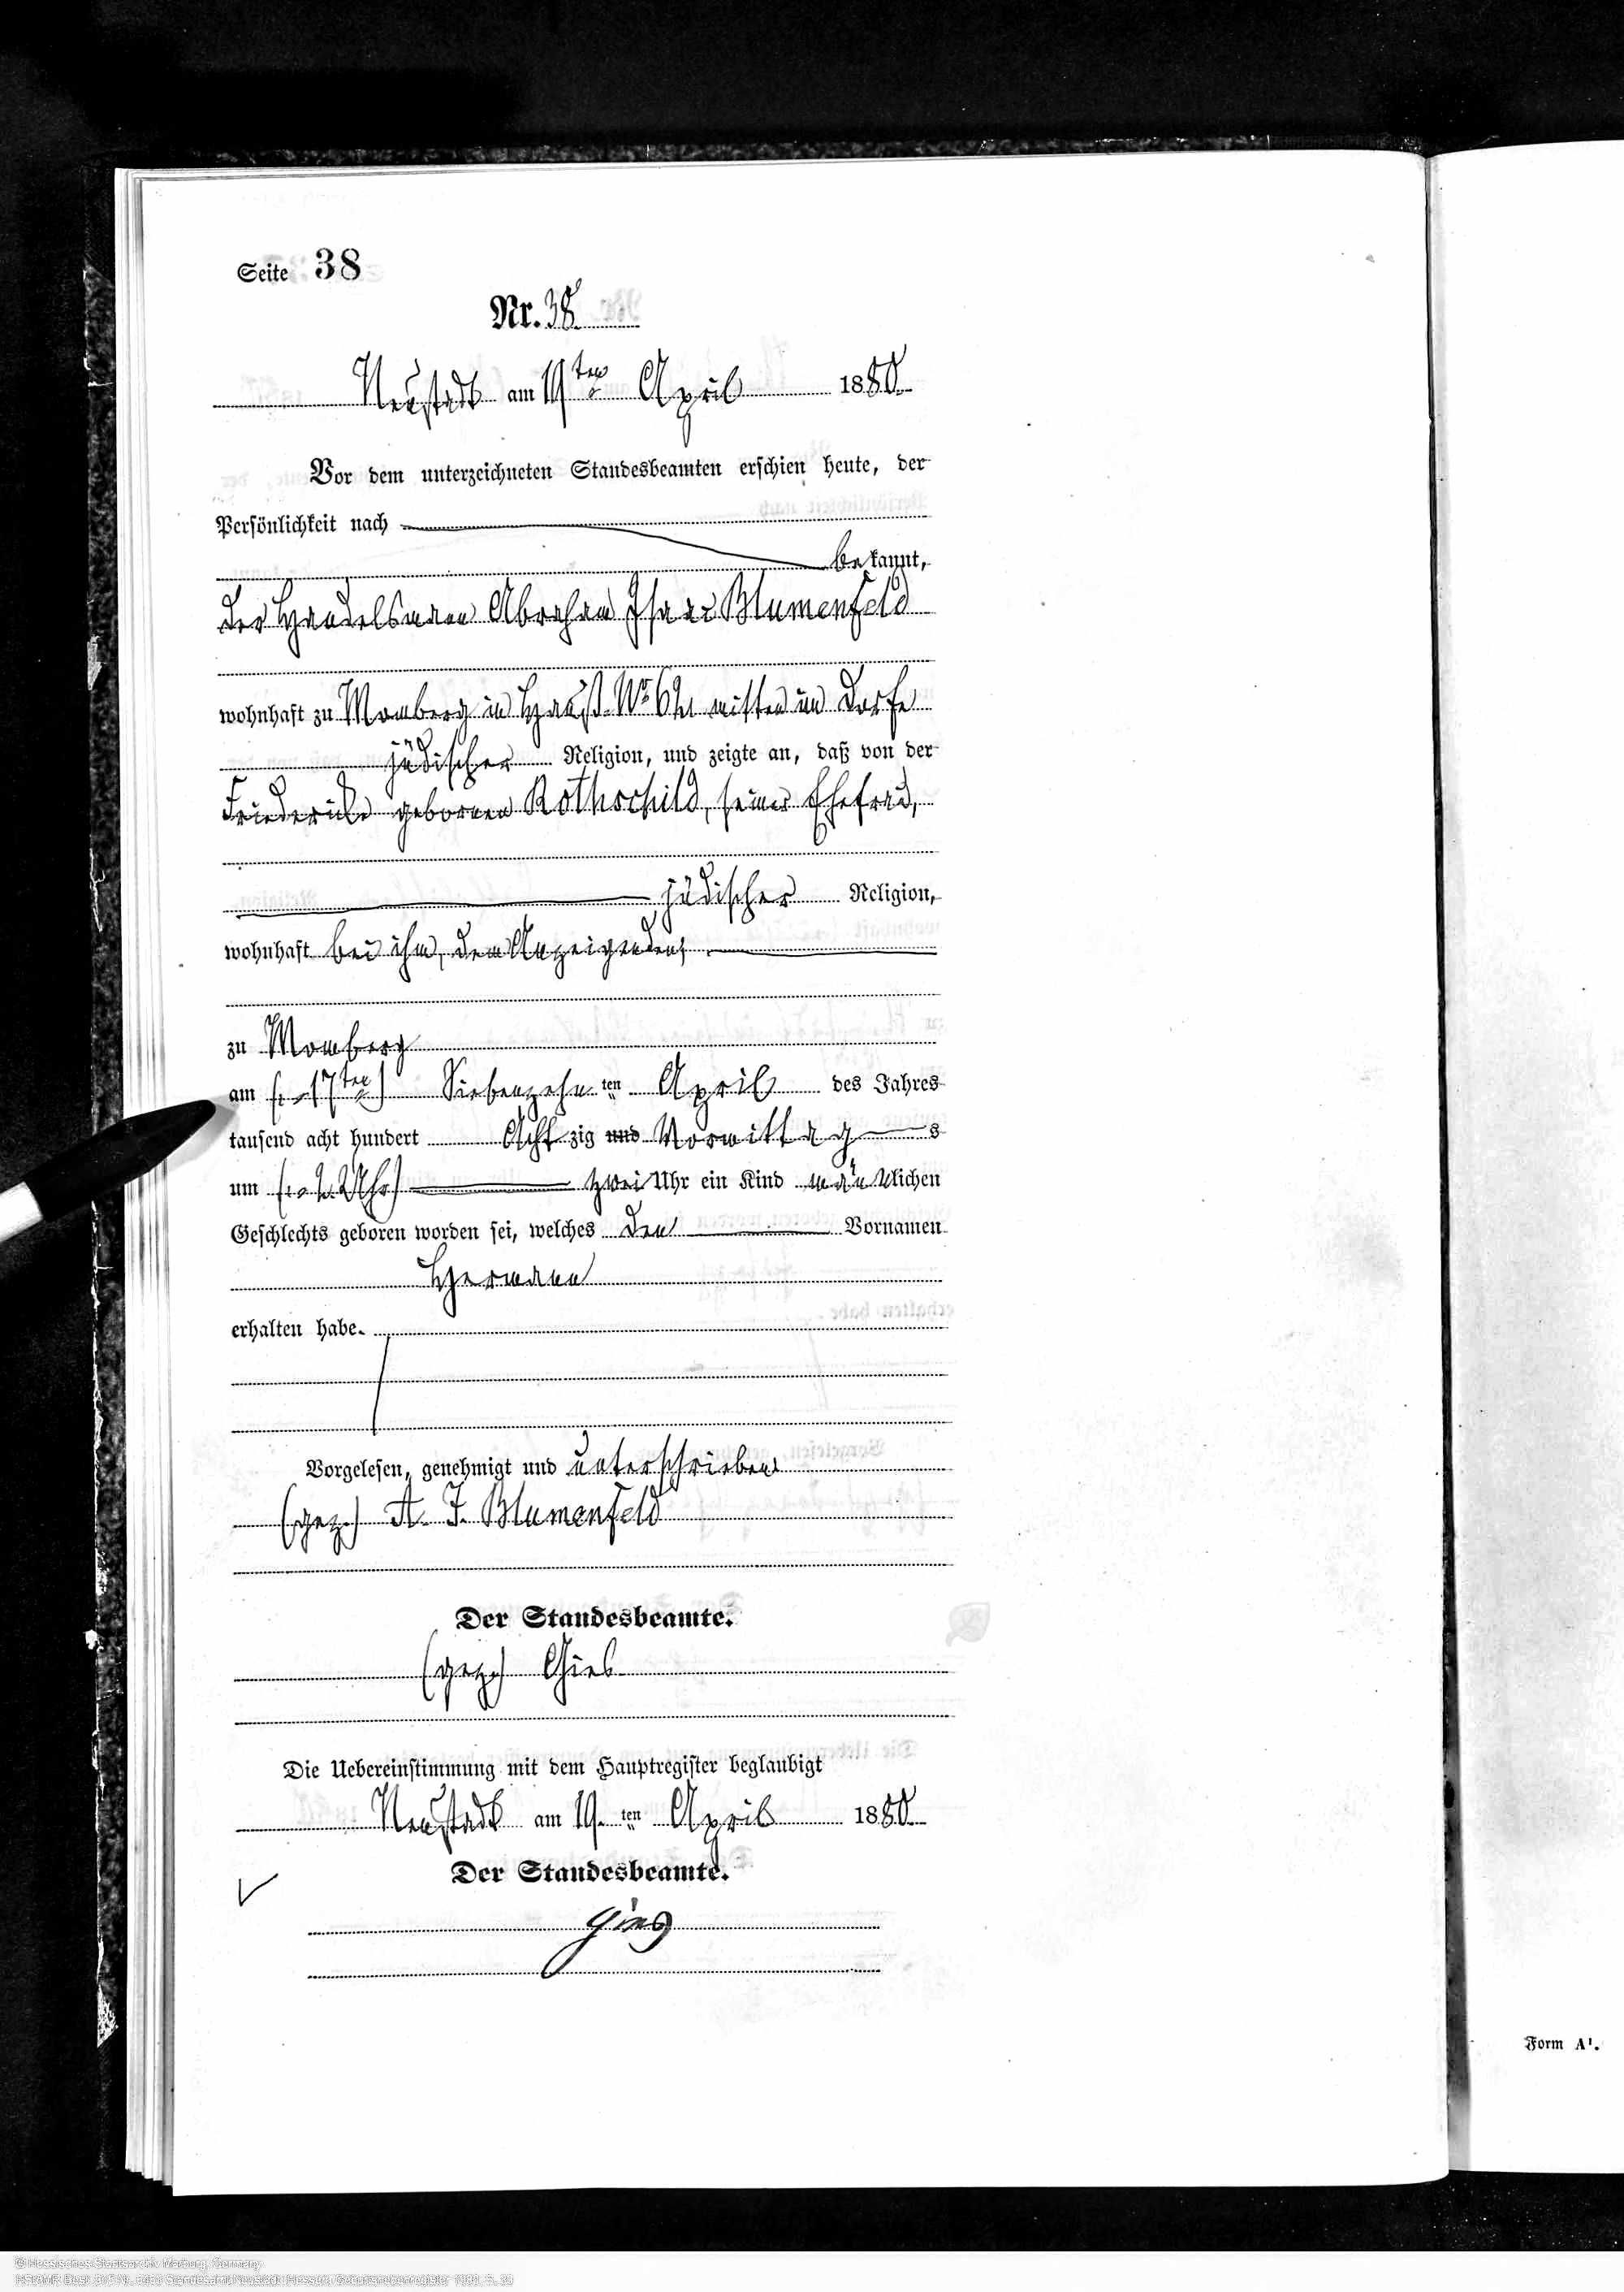 Seite 38
Nr. 38.
Neustadt am 19ten April 1880.
Vor dem unterzeichneten Standesbeamten erschien heute, der
Persönlichkeit nach
bekannt,
der Handelsmann Abraham Isaac Blumenfeld
wohnhaft zu Momberg in Hauß No mitten im Dorfe
jüdischer Religion, und zeigte an, daß von der
Friederike gebornen Rothschild, seiner Ehefrau,
jüdischer Religion,
wohnhaft bei ihm, dem Anzeigenden,
zu Momberg
am (: 17ten) Siebenzehn ten April des Jahres
tausend acht hundert Acht zig und Vormittags
um (: 2 Uhr) zwei Uhr ein Kind männlichen
Geschlechts geboren worden sei, welches den Vornamen
Hermann
erhalten habe.
Vorgelesen, genehmigt und unterschrieben
(gez.) A. I. Blumenfeld
Der Standesbeamte.
(gez.) Gies
Die Uebereinstimmung mit dem Hauptregister beglaubigt
Neustadt am 19. ten April 1880.
Der Standesbeamte.
Gies
Form A¹.
© Hessisches Staatsarchiv Marburg, Germany